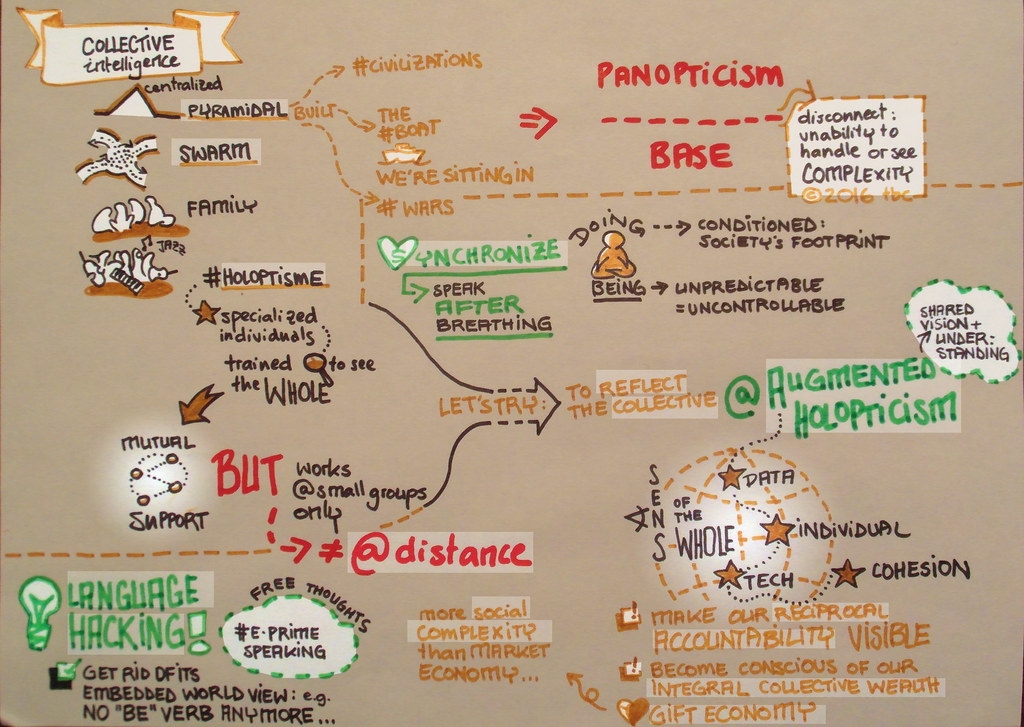 COLLECTIVE
intelligence
centralized
PYRAMIDAL
SWARM
FAMILY
JAZZ
BUILT
#CIVILIZATIONS
THE
#BOAT
WE'RE SITTING IN
#WARS
⇒
PANOPTICISM
BASE
disconnect:
unability to
handle or see
COMPLEXITY
© 2016 tbc
#HOLOPTISME
specialized
individuals
trained to see
the WHOLE
MUTUAL
SUPPORT
BUT
works
@small groups
only
→ ≠ @distance
SYNCHRONIZE
SPEAK
AFTER
BREATHING
DOING
CONDITIONED:
SOCIETY'S FOOTPRINT
BEING → UNPREDICTABLE
= UNCONTROLLABLE
LET'S TRY:
TO REFLECT
THE COLLECTIVE
@ AUGMENTED
HOLOPTICISM
SHARED
VISION +
UNDER-
STANDING
SENS
OF
THE
WHOLE
DATA
INDIVIDUAL
TECH
COHESION
LANGUAGE
HACKING!
GET RID OF ITS
EMBEDDED WORLD VIEW: e.g.
NO "BE" VERB ANYMORE...
FREE THOUGHTS
#E-PRIME
SPEAKING
more social
COMPLEXITY
than MARKET
ECONOMY...
! MAKE OUR RECIPROCAL
ACCOUNTABILITY VISIBLE
! BECOME CONSCIOUS OF OUR
INTEGRAL COLLECTIVE WEALTH
GIFT ECONOMY